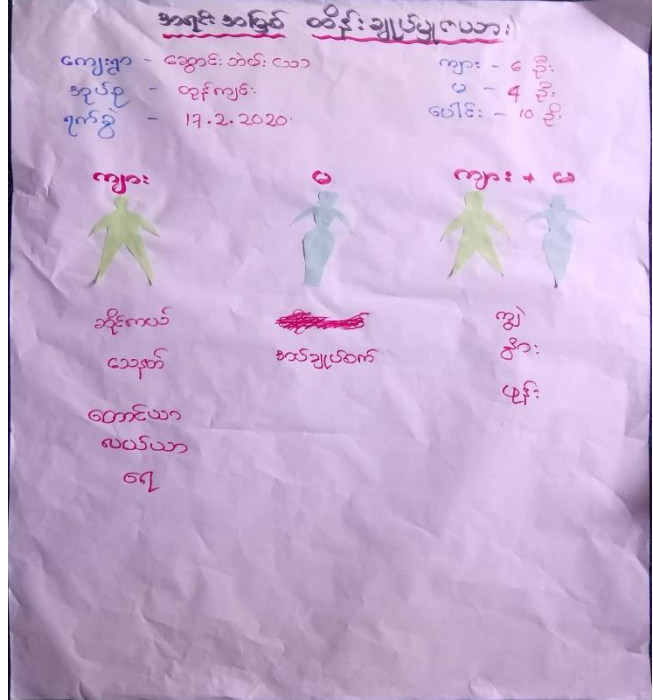 အရင်းအမြစ် ထိန်းချုပ်မှုဇယား
ကျေးရွာ - ဆောင်းဘဲဖ်းသာ
အုပ်စု - တုန်ကျင်း
ရက်စွဲ - 17.2.2020.
ကျား - ၆ ဦး
မ - 4 ဦး
ပေါင်း - ၁၀ ဦး
ကျား
မ
ကျား + မ
ဆိုင်ကယ်
သေနတ်
တောင်ယာ
လယ်ယာ
ရေ
စယ်ချုပ်စက်
ကျွဲ
နွား
ဖုန်း